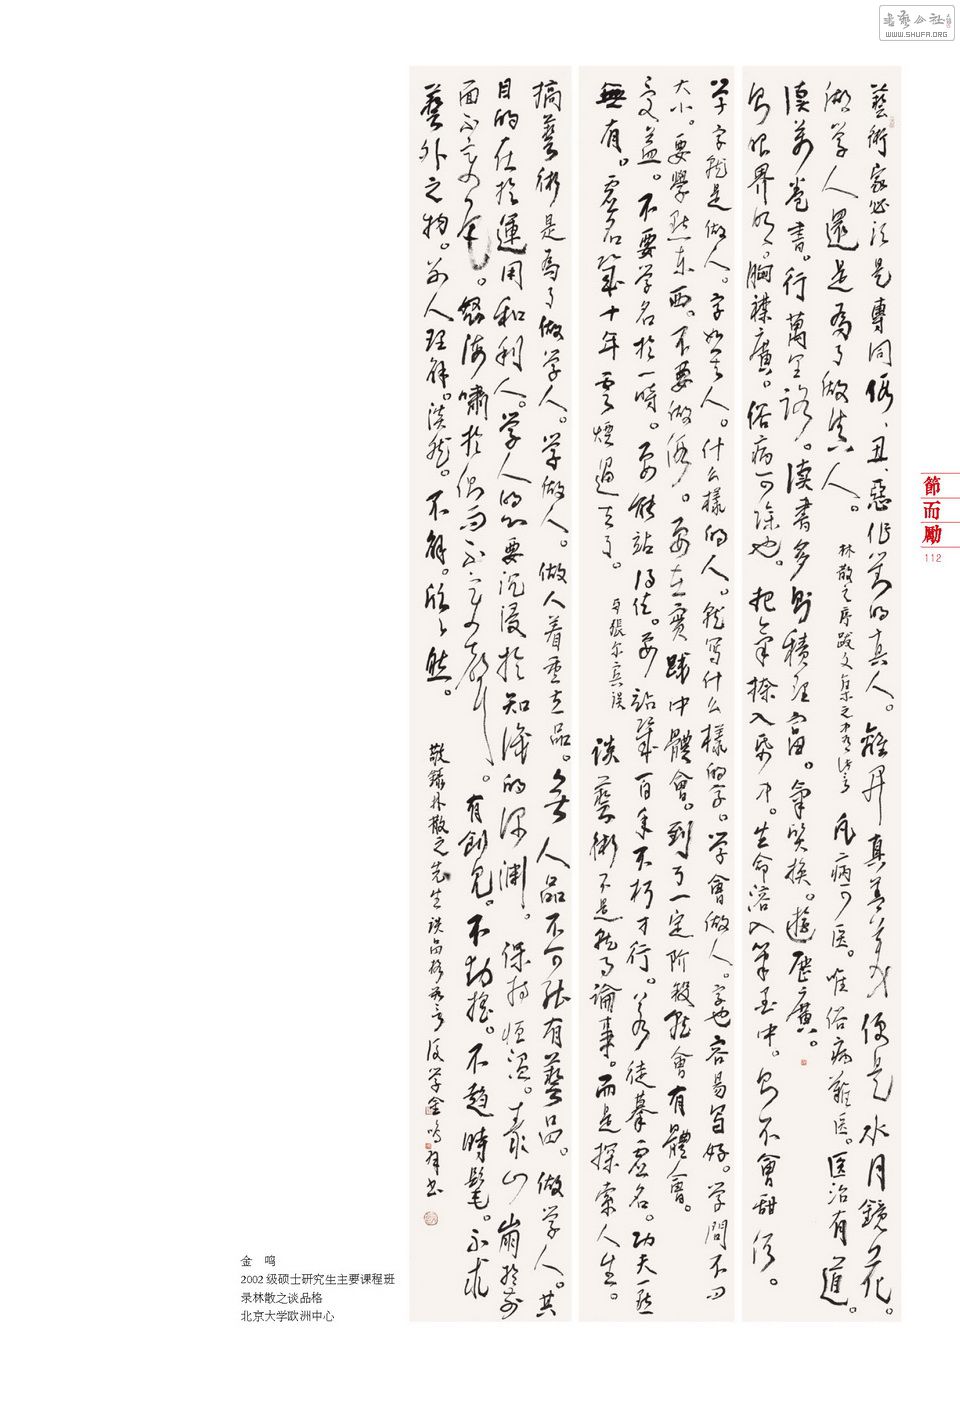 書藝公社
WWW.SHUFA.ORG
藝術家必須是專同假、丑、惡作对的真人。離開真善美便是水月鏡花。
做學人還是為了做真人。
林散之序跋文集之中有語
凡病可医。唯俗病難医。医治有道。
讀萬卷書。行萬里路。讀書多則積理富。氣質换。遊歷廣。
則眼界明。胸襟廣。俗病可除也。
把氣捺入。生命溶入筆墨中。則不會甜俗。
学字就是做人。字如其人。什么樣的人。就写什么樣的字。学會做人。字也容易写好。学問不问
大小。要學點东西。不要做假。要在實踐中體會。到了一定阶段就會有體會。
受益。不要学名於一時。要能站得住。要站几百年不朽才行。若徒慕虚名。功夫一點
無有。虚名几十年雲煙過去了。
談藝術不是就事論事。而是探索人生。
搞藝術是為了做学人。学做人。做人着重立品。無人品不可能有藝品。做学人。其
目的在於運用和利人。学人的心要沉浸於知識的深渊。保持恒温。泰山崩於前
面不变色。怒海嘯於側而不变聲。有創見。不動摇。不趋時髦。不求
藝外之物。别人理解。淡然。不解。欣然。
敬錄林散之先生談品格
後学金鳴拜书
節而勵
112
金 鸣
2002 级硕士研究生主要课程班
录林散之谈品格
北京大学欧洲中心